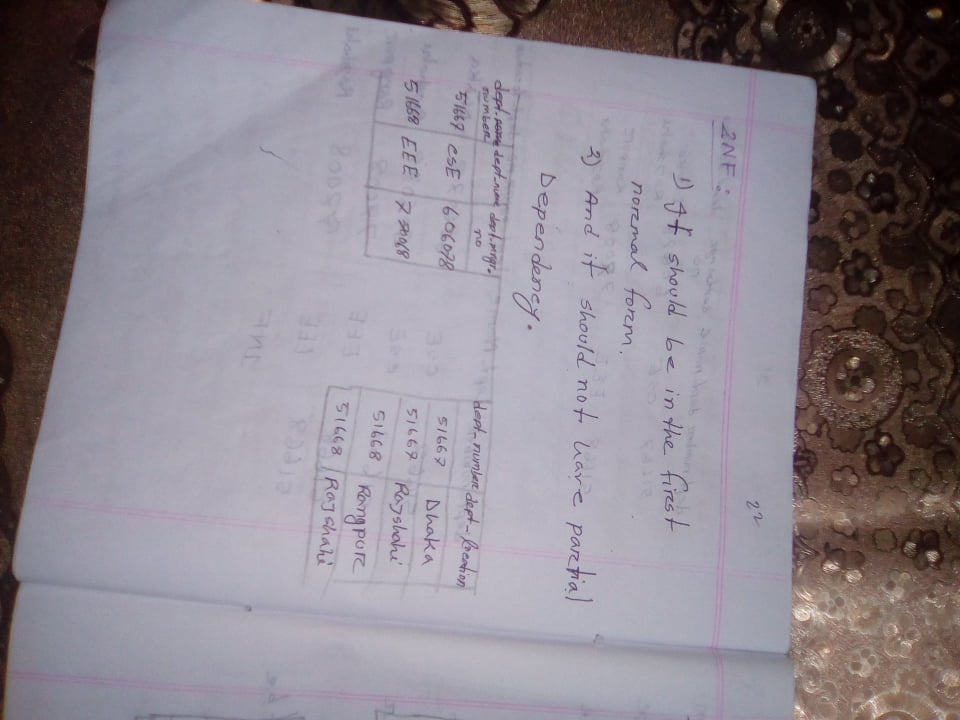 22
2NF :
1) It should be in the first
normal form.
2) And it should not have partial
Dependency.
dept. number dept-name dept-mngr. no
51667 CSE 606078
51668 EEE
dept-number dept-location
51667 Dhaka
51667 Rajshahi
51668 Rangpur
51668 Rajshahi